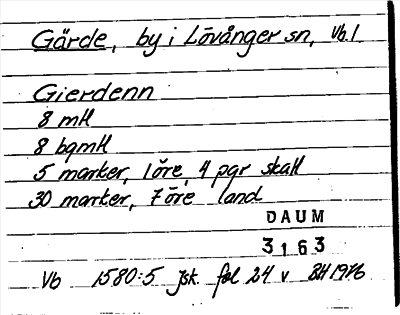 Gärde, by i Lövånger sn, Vb. l
Gierdenn
8 mtl
8 bgmtl
5 marker, 1 öre, 4 pgr skatt
30 marker, 7 öre land
DAUM
3163
Vb 1580:5 Jsk. fol 24 v BH 1976